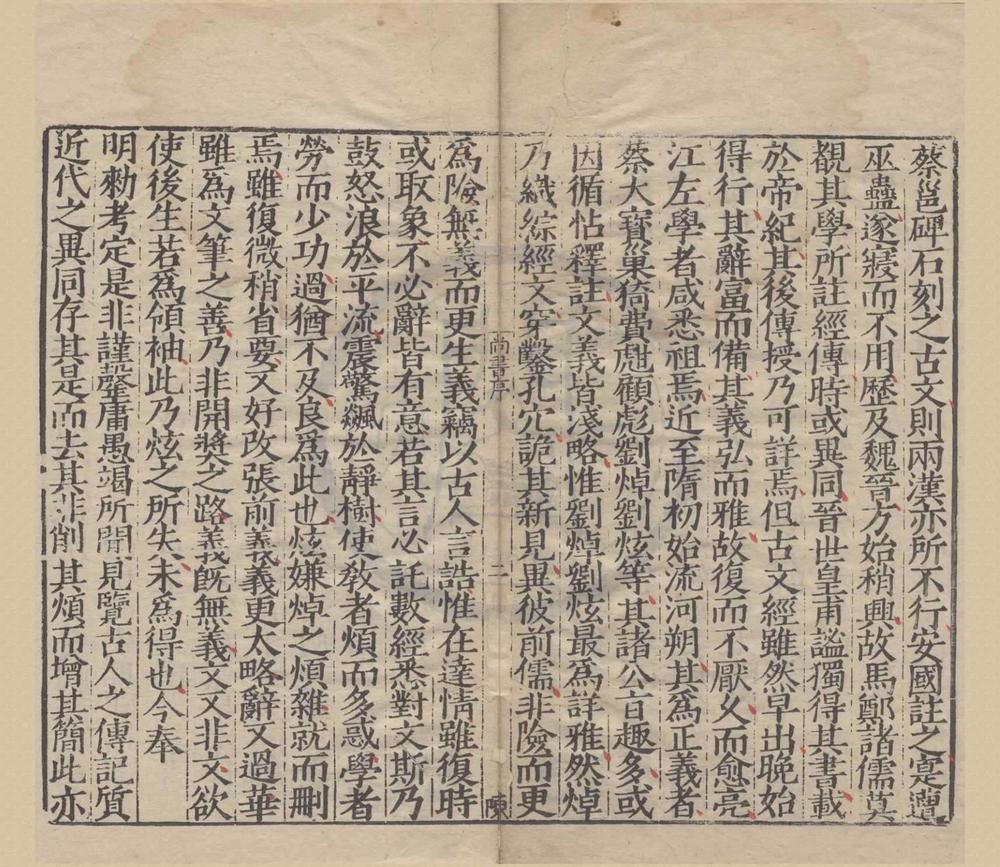 蔡邕碑石刻之古文則兩漢亦所不行安國註之寔遭
巫蠱遂寢而不用歷及魏晉方始稍興故馬鄭諸儒莫
覩其學所註經傳時或異同晉世皇甫謐獨得其書載
於帝紀其後傳授乃可詳焉但古文經雖然早出晚始
得行其辭富而備其義弘而雅故復而不厭久而愈亮
江左學者咸悉祖焉近至隋初始流河朔其為正義者
蔡大寳巢猗費甝顧彪劉焯劉炫等其諸公㫖趣多或
因循怗釋註文義皆淺略惟劉焯劉炫最為詳雅然焯
乃織綜經文穿鑿孔穴詭其新見異彼前儒非險而更
尚書序
二
陳
為險無義而更生義竊以古人言誥惟在達情雖復時
或取象不必辭皆有意若其言必託數經悉對文斯乃
鼓怒浪於平流震驚飇於靜樹使教者煩而多惑學者
勞而少功過猶不及良為此也炫嫌焯之煩雜就而刪
焉雖復微稍省要又好改張前義義更太略辭又過華
雖為文筆之善乃非開奬之路義既無義文又非文欲
使後生若為領袖此乃炫之所失未為得也今奉
明勑考定是非謹罄庸愚竭所聞見覽古人之傳記質
近代之異同存其是而去其非削其煩而增其簡此亦